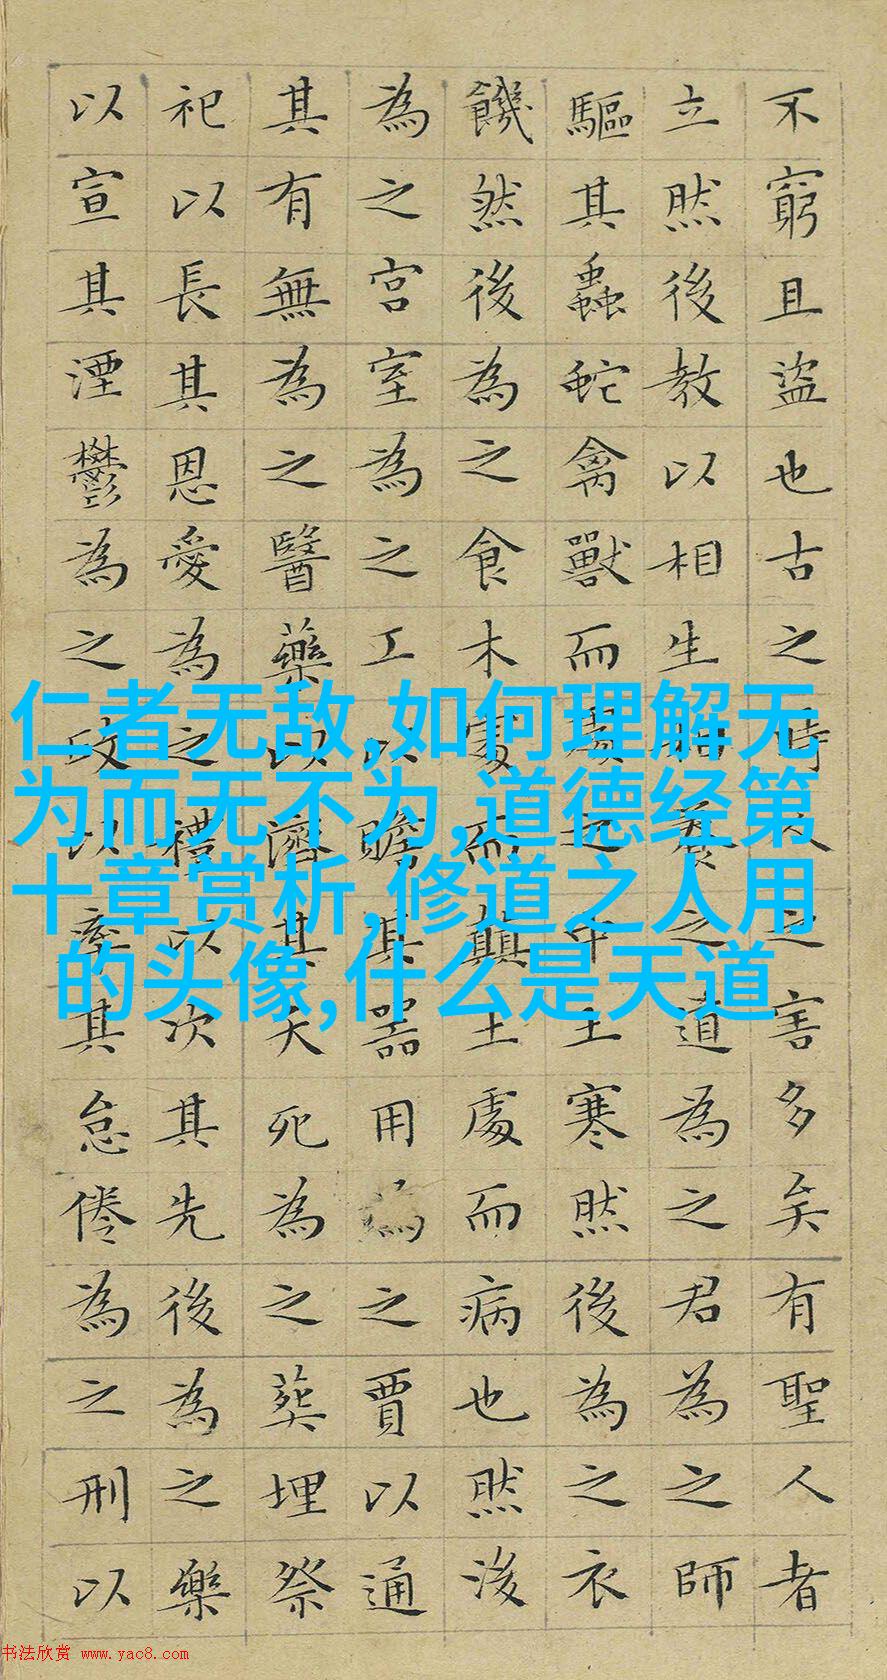 不窮且盜也古之時人之害多矣有聖人者
立然後教以相生相養之道為之君為之師
驅其蟲蛇禽獸而處之中土寒然後為之衣
饑然後為之食木處而顛土處而病也然後
為之宮室為之工以贍其器用為之賈以通
其有無為之醫藥以濟其夭死為之葬埋祭
祀以長其恩愛為之禮以次其先後為之樂
以宣其湮鬱為之政以率其怠倦為之刑以
仁者无敌,如何理解无
为而无不为,道德经第
十章赏析,修道之人用
的头像,什么是天道
书法欣赏 www.yac8.com